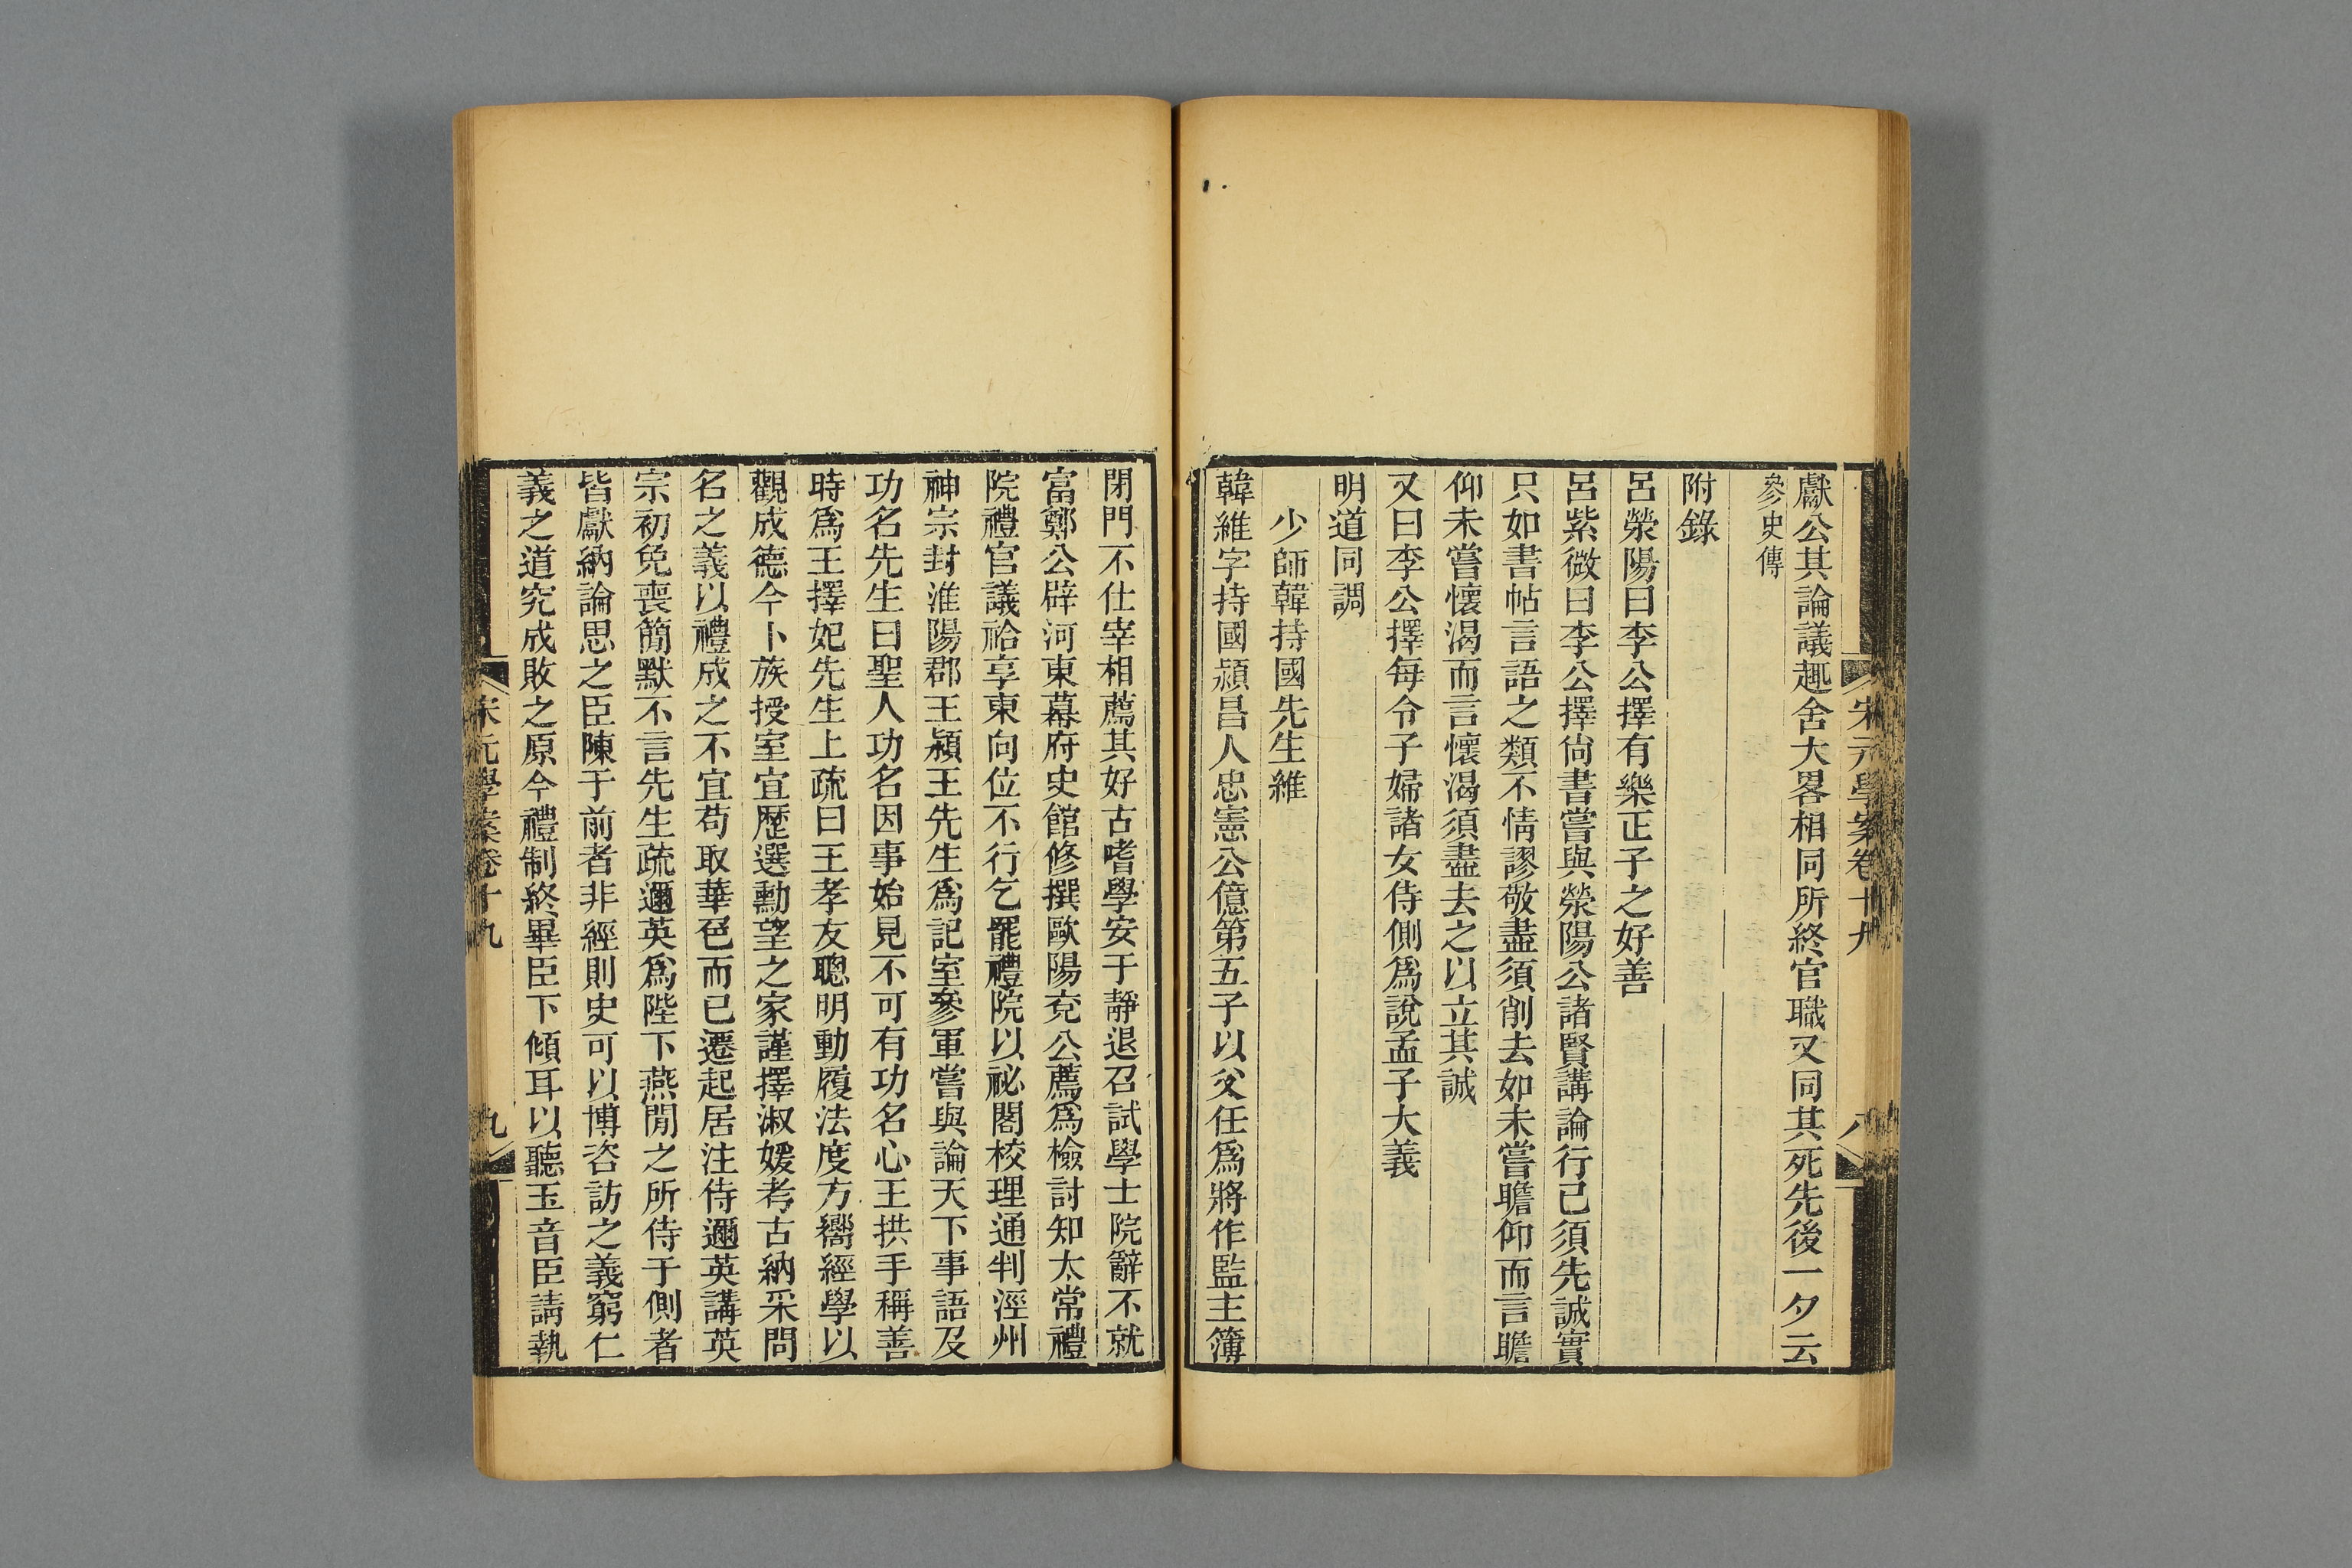 宋元學案卷十九
八
獻公其論議趣舍大畧相同所終官職又同其死先後一夕云
參史傳
附錄
呂滎陽曰李公擇有樂正子之好善
呂紫微曰李公擇尙書嘗與滎陽公諸賢講論行己須先誠實
只如書帖言語之類不情謬敬盡須削去如未嘗瞻仰而言瞻
仰未嘗懷渴而言懷渴須盡去之以立其誠
又曰李公擇每令子婦諸女侍側爲說孟子大義
明道同調
少師韓持國先生維
韓維字持國潁昌人忠憲公億第五子以父任爲將作監主簿
閉門不仕宰相薦其好古嗜學安于靜退召試學士院辭不就
富鄭公辟河東幕府史館修撰歐陽兗公薦爲檢討知太常禮
院禮官議祫享東向位不行乞罷禮院以祕閣校理通判涇州
神宗封淮陽郡王潁王先生爲記室參軍嘗與論天下事語及
功名先生曰聖人功名因事始見不可有功名心王拱手稱善
時爲王擇妃先生上疏曰王孝友聰明動履法度方嚮經學以
觀成德今卜族授室宜歷選勳望之家謹擇淑媛考古納采問
名之義以禮成之不宜苟取華色而已遷起居注侍邇英講英
宗初免喪簡默不言先生疏邇英爲陛下燕閒之所侍于側者
皆獻納論思之臣陳于前者非經則史可以博咨訪之義窮仁
義之道究成敗之原今禮制終畢臣下傾耳以聽玉音臣請執
宋元學案卷十九
九